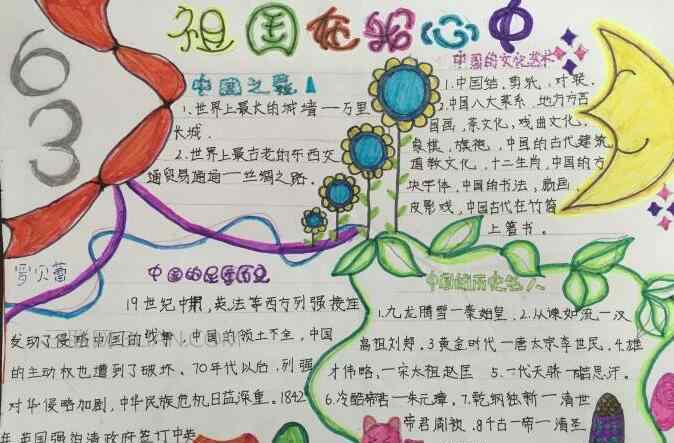 祖国在我心中
63
中国之最
1.世界上最大的城墙一万里
长城.
2.世界上最古老的东西交
通贸易通道一丝绸之路.
中国的文化艺术
1.中国结.剪纸,对联.
2.中国八大菜系,地方方言
国画,茶文化,戏曲文化.
象棋,旗袍,中国的古代建筑
道教文化,十二生肖,中国的方
块字体,中国的书法,版画,
皮影戏,中国古代在竹简
上著书.
罗贝蕾
中国的屈辱历史
19世纪中期,英法等西方列强接连
发动了侵略中国的战争,中国的领土不全,中国
的主动权也遭到了破坏.70年代以后,列强
对华侵略加剧,中华民族危机日益深重。1842
年英国强迫清政府签订中英
中国的历史名人
1.九龙腾雪一秦始皇.2.从谏如流一汉
高祖刘邦.3黄金时代一唐太宗李世民.4.雄
才伟略,一宋太祖赵匡 5.一代天骄一
6.冷酷帝君一朱元璋.7.乾纲独断一清世
帝君 8.千古一帝一清圣